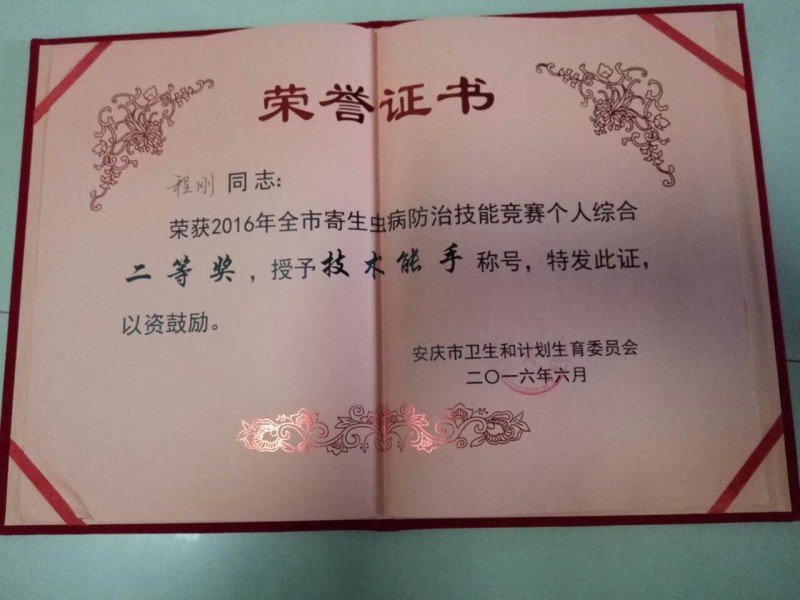 荣誉证书
程刚同志:
荣获2016年全市寄生虫病防治技能竞赛个人综合
二等奖，授予技术能手称号，特发此证，
以资鼓励。
安庆市卫生和计划生育委员会
二〇一六年六月